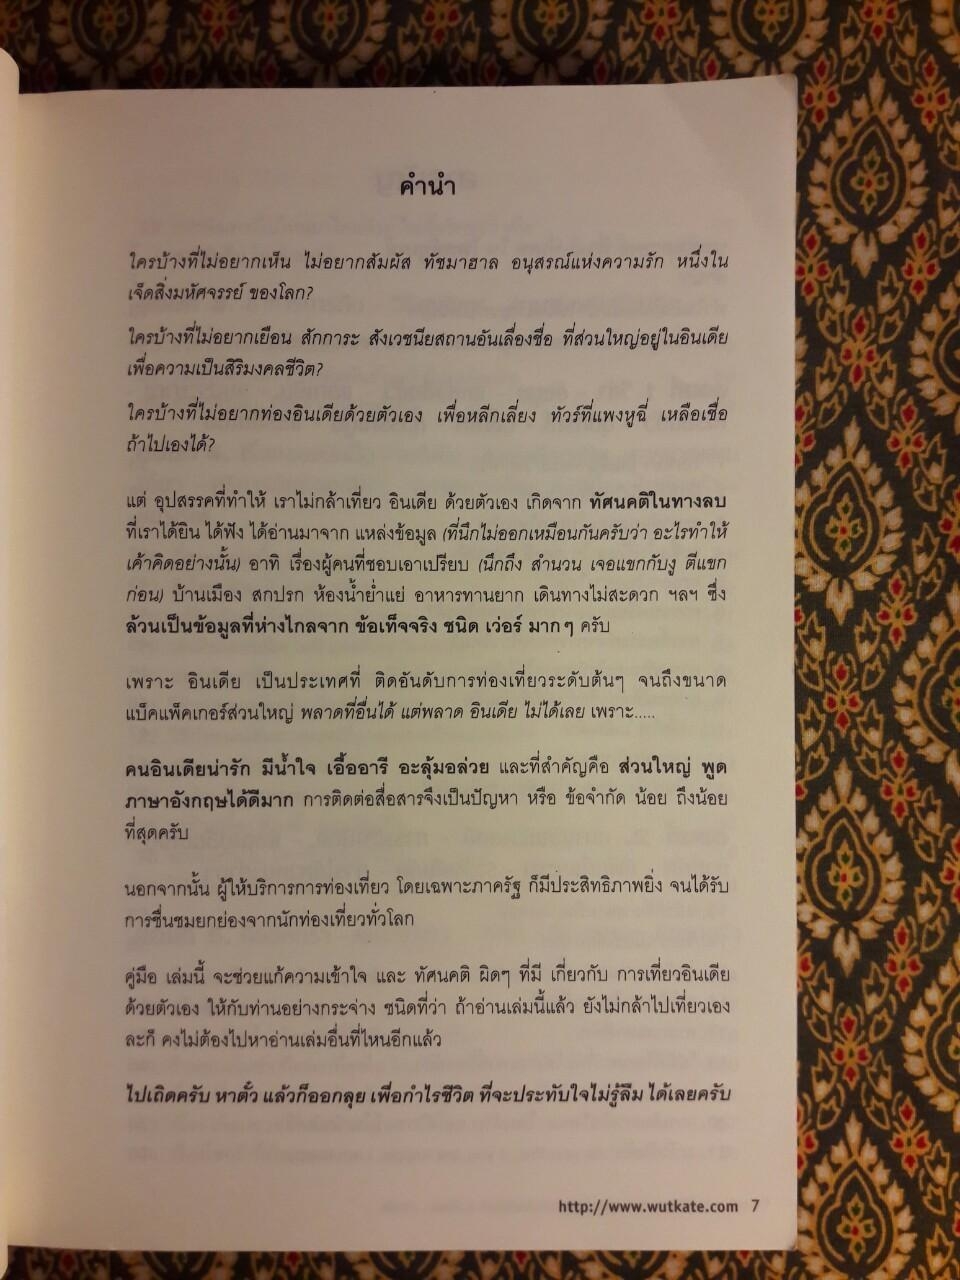 คำนำ
ใครบ้างที่ไม่อยากเห็น ไม่อยากสัมผัส ทัชมาฮาล อนุสรณ์แห่งความรัก หนึ่งใน
เจ็ดสิ่งมหัศจรรย์ ของโลก?
ใครบ้างที่ไม่อยากเยือน สักการะ สังเวชนียสถานอันเลื่องชื่อ ที่ส่วนใหญ่อยู่ในอินเดีย
เพื่อความเป็นสิริมงคลชีวิต?
ใครบ้างที่ไม่อยากท่องอินเดียด้วยตัวเอง เพื่อหลีกเลี่ยง ทัวร์ที่แพงหูฉี่ เหลือเชื่อ
ถ้าไปเองได้?
แต่ อุปสรรคที่ทำให้ เราไม่กล้าเที่ยว อินเดีย ด้วยตัวเอง เกิดจาก ทัศนคติในทางลบ
ที่เราได้ยิน ได้ฟัง ได้อ่านมาจาก แหล่งข้อมูล (ที่นึกไม่ออกเหมือนกันครับว่า อะไรทำให้
เค้าคิดอย่างนั้น) อาทิ เรื่องผู้คนที่ชอบเอาเปรียบ (นึกถึง สำนวน เจอแขกกับงู ตีแขก
ก่อน) บ้านเมือง สกปรก ห้องน้ำย่ำแย่ อาหารทานยาก เดินทางไม่สะดวก ฯลฯ ซึ่ง
ล้วนเป็นข้อมูลที่ห่างไกลจาก ข้อเท็จจริง ชนิด เว่อร์ มากๆ ครับ
เพราะ อินเดีย เป็นประเทศที่ ติดอันดับการท่องเที่ยวระดับต้นๆ จนถึงขนาด
แบ็คแพ็คเกอร์ส่วนใหญ่ พลาดที่อื่นได้ แต่พลาด อินเดีย ไม่ได้เลย เพราะ.....
คนอินเดียน่ารัก มีน้ำใจ เอื้ออารี อะลุ้มอล่วย และที่สำคัญคือ ส่วนใหญ่ พูด
ภาษาอังกฤษได้ดีมาก การติดต่อสื่อสารจึงเป็นปัญหา หรือ ข้อจำกัด น้อย ถึงน้อย
ที่สุดครับ
นอกจากนั้น ผู้ให้บริการการท่องเที่ยว โดยเฉพาะภาครัฐ ก็มีประสิทธิภาพยิ่ง จนได้รับ
การชื่นชมยกย่องจากนักท่องเที่ยวทั่วโลก
คู่มือ เล่มนี้ จะช่วยแก้ความเข้าใจ และ ทัศนคติ ผิดๆ ที่มี เกี่ยวกับ การเที่ยวอินเดีย
ด้วยตัวเอง ให้กับท่านอย่างกระจ่าง ชนิดที่ว่า ถ้าอ่านเล่มนี้แล้ว ยังไม่กล้าไปเที่ยวเอง
ละก็ คงไม่ต้องไปหาอ่านเล่มอื่นที่ไหนอีกแล้ว
ไปเถิดครับ หาตั๋ว แล้วก็ออกลุย เพื่อกำไรชีวิต ที่จะประทับใจไม่รู้ลืม ได้เลยครับ
http://www.wutkate.com 7